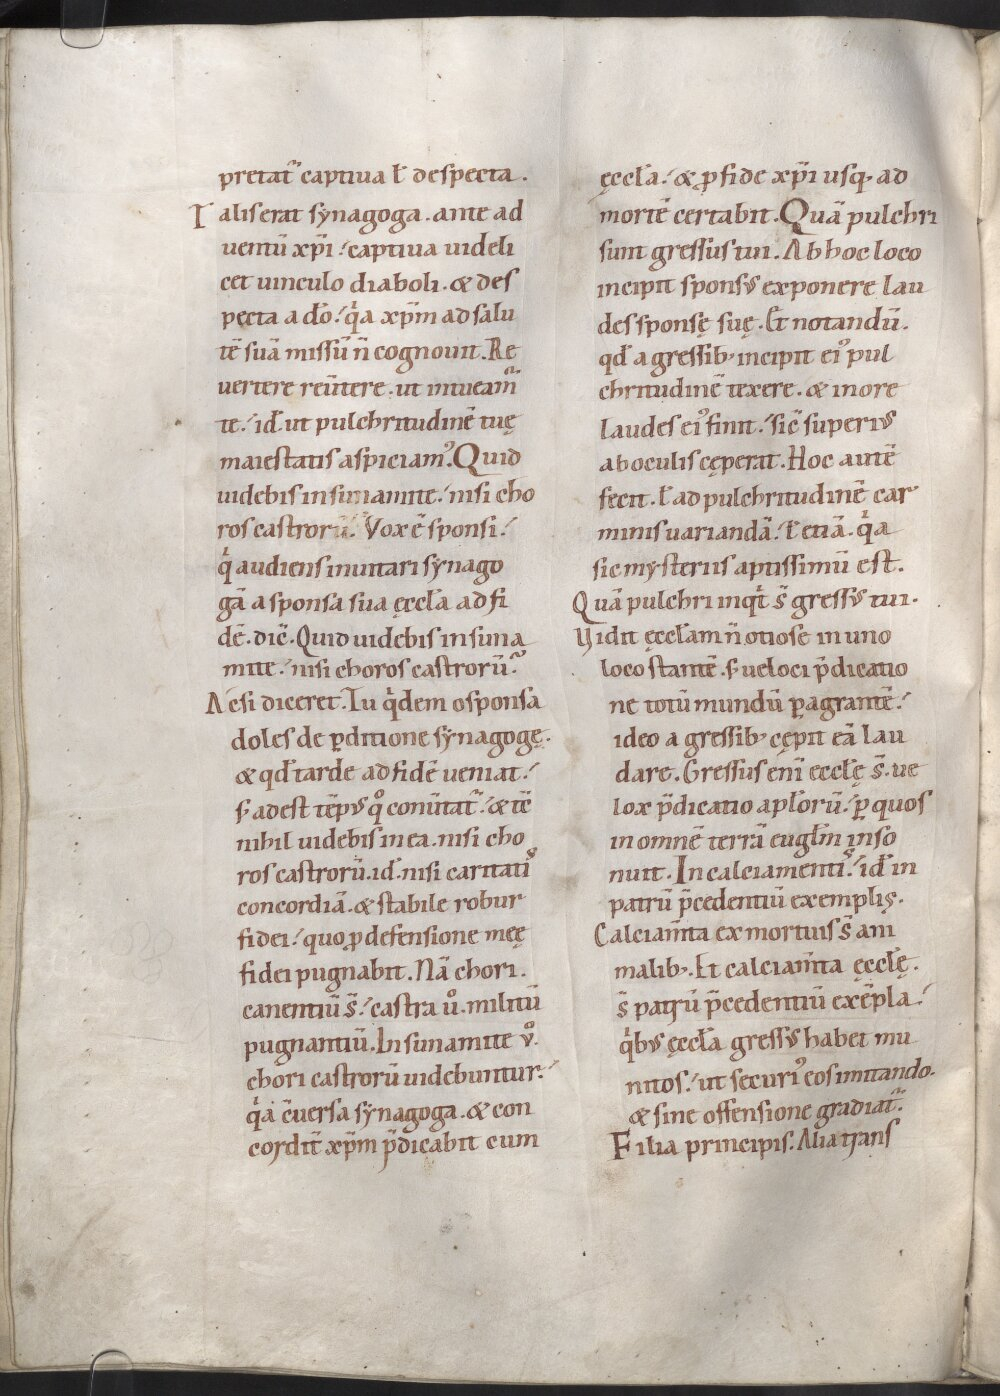 pretat᷑ captiua ł despecta.
Talis erat synagoga. ante ad
uentū xp̄i. captiua uideli
cet uinculo diaboli. & des
pecta a do̅. qͥa xp̄m ad salu
tē suā missū n̄ cognouit. Re
uertere reūtere. ut intueam᷑
te. id̄. ut pulchritudinē tuę
maiestatis aspiciamꝰ. Quid
uidebis in sunamite. nisi cho
ros castrorū. Vox ē sponsi.
qͥ audiens inuitari synago
gā a sponsa sua ęccła ad fi
dē. dic̄. Quid uidebis in suna
mite. nisi choros castrorū.
Ac si diceret. Tu qͥdem o sponsa
doles de ꝑditione synagogę.
& qd̄ tarde ad fidē ueniat.
s; adest tēpus qͦ conūtat᷑. & tē
nihil uidebis in ea. nisi cho
ros castrorū. id̄. nisi caritatis
concordiā. & stabile robur
fidei. quo ꝓ defensione meę
fidei pugnabit. Nā chori.
canentiū s̄. castra uͦ. militū
pugnantiū. In sunamite uͦ.
chori castrorū uidebuntur.
qͥa c̄uersa synagoga. & con
cordit̄ xp̄m p̄dicabit cum
ęccła. & ꝓ fide xp̄i usq; ad
mortē certabit. Quā pulchri
sunt gressus tui. Ab hoc loco
incipit sponsus exponere lau
des sponsę suę. Et notandū.
qd̄ a gressib; incipit eiꝰ pul
chritudinē texere. & in ore
laudes eiꝰ finit. sic̄ superius
ab oculis cęperat. Hoc autē
fecit. ł ad pulchritudinē car
minis uariandā. ł etiā. qͥa
sic mysteriis aptissimū est.
Quā pulchri inqͥt s̄ gressus tui.
Vidit ęccłam n̄ otiose in uno
loco stantē. s; ueloci p̄dicatio
ne totū mundū ꝑagrantē.
ideo a gressib; cępit eā lau
dare. Gressus enī ecclę s̄. ue
lox p̄dicatio apłorū. ꝑ quos
in omnē terrā euglm̄ inso
nuit. In calciamentis. id̄ in
patrū p̄cedentiū exemplis.
Calciam̄ta ex mortuis s̄ ani
malib;. Et calciam̄ta ęcclę.
s̄ patrū p̄cedentiū exēpla.
qͥbus ęccła gressus habet mu
nitos. ut securiꝰ eos imitando.
& sine offensione gradiat᷑.
Filia principis. Alia trans